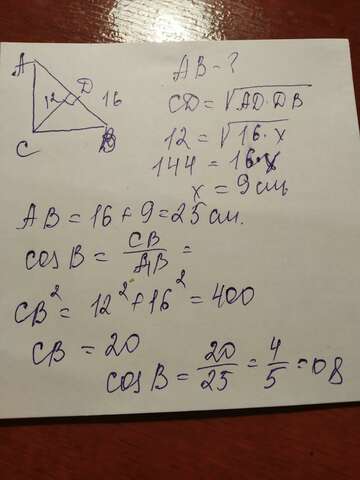 A
12
D
16
C
B
AB - ?
CD = √AD·DB
12 = √16·x
144 = 16·x
x = 9 см
AB = 16 + 9 = 25 см.
cos B = CB/AB =
CB² = 12² + 16² = 400
CB = 20
cos B = 20/25 = 4/5 = 08